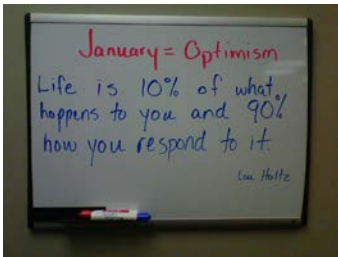 January = Optimism
Life is 10% of what
happens to you and 90%
how you respond to it.
Lou Holtz